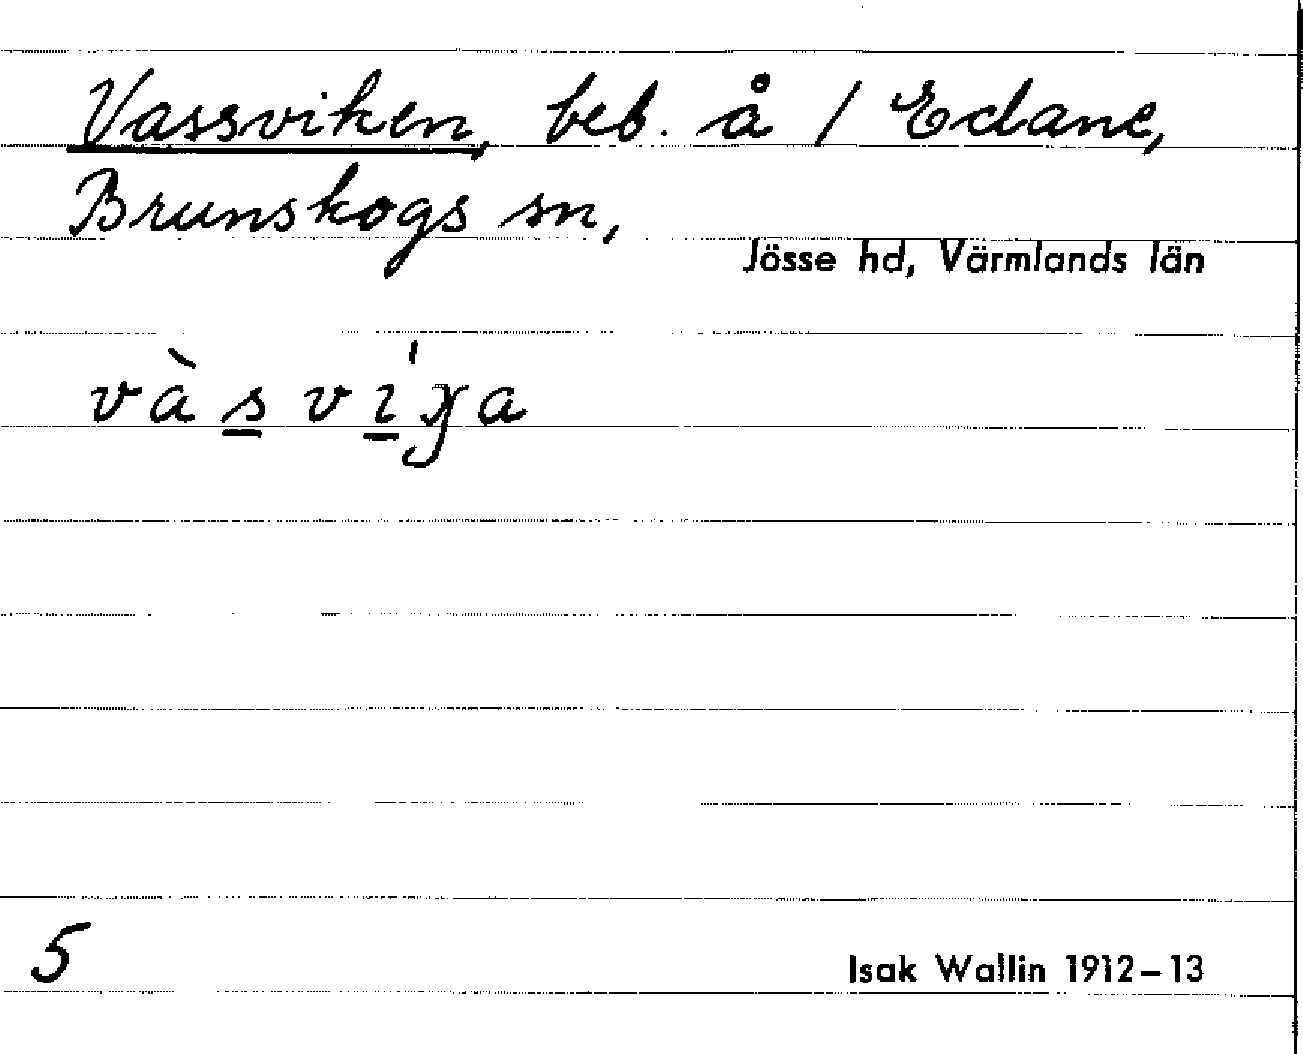 Vassviken, beb. å / Edane,
Brunskogs sn,
Jösse hd, Värmlands län
và s̲ v i̲' ɣa
5
Isak Wallin 1912–13